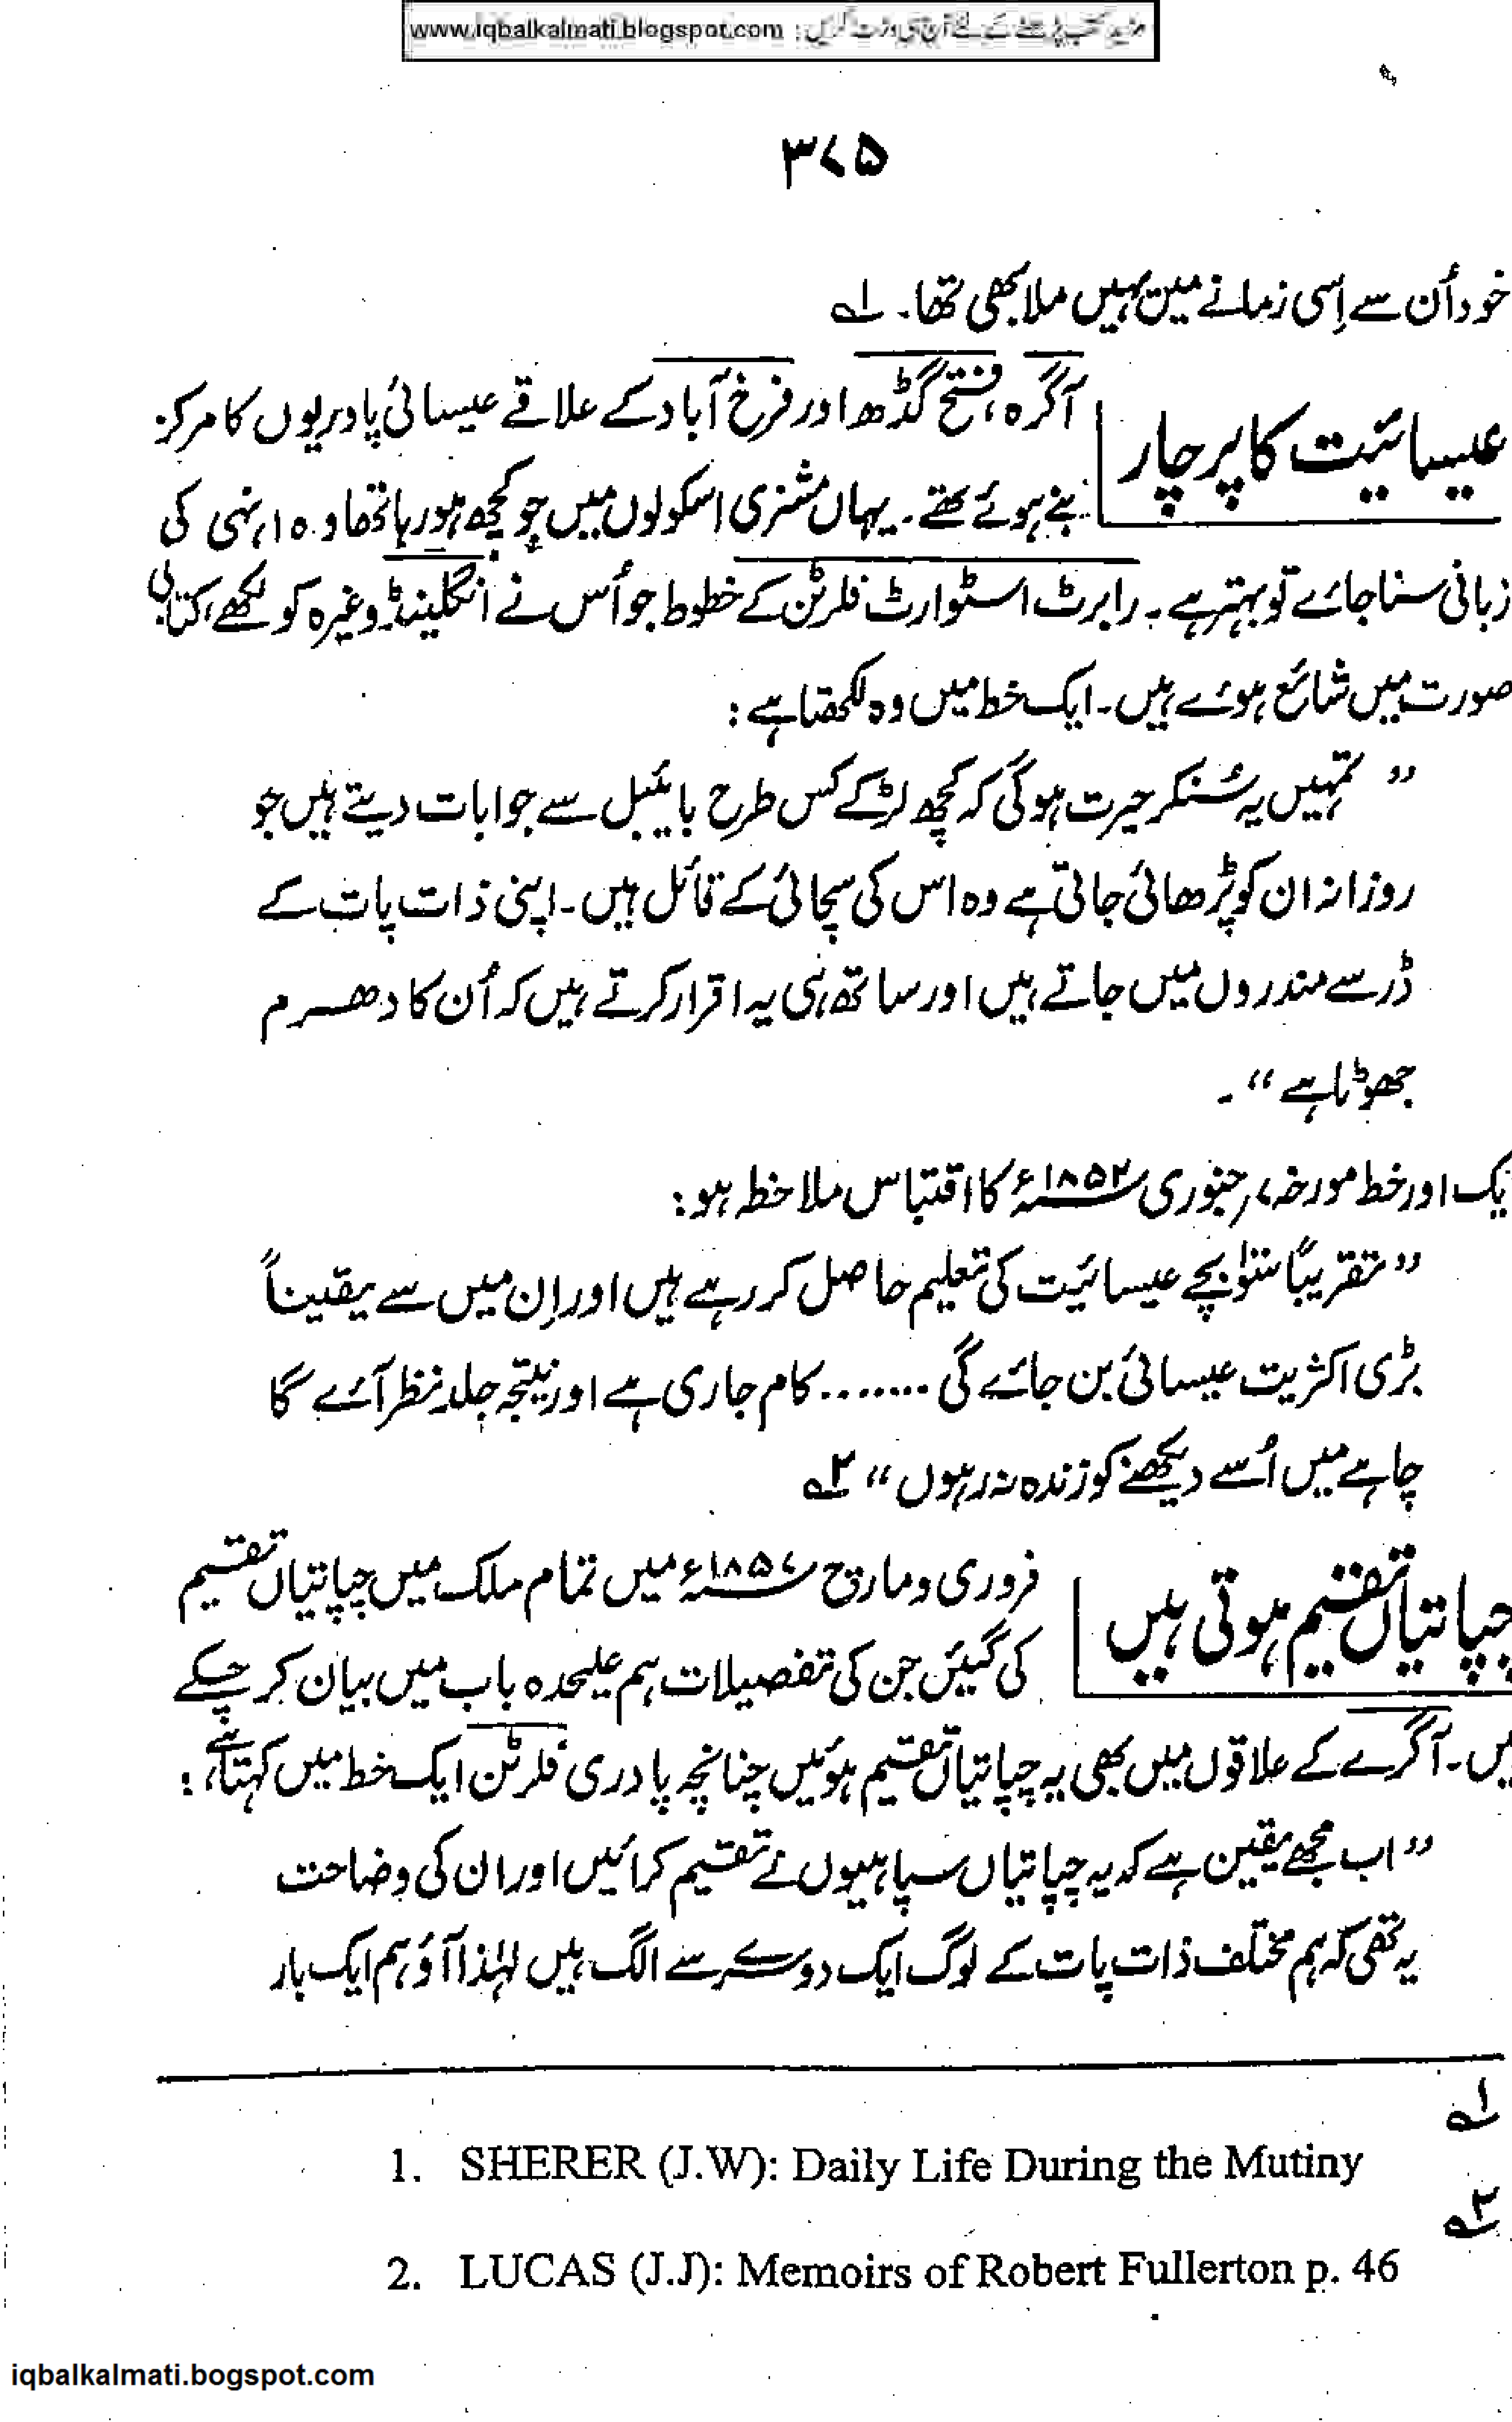 مزید کتب پڑھنے کے لئے آج ہی وزٹ کریں : www.iqbalkalmati.blogspot.com
۳۷۵
خود اُن سے اِسی زمانے میں کہیں ملا بھی تھا۔ ؎۱
عیسائیت کا پرچار
آگرہ، فتح گڈھ اور فرخ آباد کے علاقے عیسائی پادریوں کا مرکز
بنے ہوئے تھے۔ یہاں مشنری اسکولوں میں جو کچھ ہو رہا تھا وہ انہی کی
زبانی سنا جائے تو بہتر ہے۔ رابرٹ اسٹوارٹ فلرٹن کے خطوط جو اُس نے انگلینڈ وغیرہ کو لکھے، کتابی
صورت میں شائع ہوئے ہیں۔ ایک خط میں وہ لکھتا ہے:
”تمہیں یہ سُنکر حیرت ہوگی کہ کچھ لڑکے کس طرح بائیبل سے جوابات دیتے ہیں جو
روزانہ ان کو پڑھائی جاتی ہے وہ اس کی سچائی کے قائل ہیں۔ اپنی ذات پات کے
ڈر سے مندروں میں جاتے ہیں اور ساتھ ہی یہ اقرار کرتے ہیں کہ اُن کا دھرم
جھوٹا ہے“۔
یک اور خط مورخہ ۷ر جنوری ۱۸۵۲ء کا اقتباس ملاحظہ ہو:
”تقریباً سَو بچے عیسائیت کی تعلیم حاصل کر رہے ہیں اور اِن میں سے یقیناً
بڑی اکثریت عیسائی بن جائے گی ....... کام جاری ہے اور نتیجہ جلد نظر آئے گا
چاہے میں اُسے دیکھنے کو زندہ نہ رہوں“ ؎۲
چپاتیاں تقسیم ہوتی ہیں
فروری و مارچ ۱۸۵۷ء میں تمام ملک میں چپاتیاں تقسیم
کی گئیں جن کی تفصیلات ہم علیحدہ باب میں بیان کر چکے
ہیں۔ آگرے کے علاقوں میں بھی یہ چپاتیاں تقسیم ہوئیں چنانچہ پادری فلرٹن ایک خط میں کہتا ہے:
”اب مجھے یقین ہے کہ یہ چپاتیاں سپاہیوں نے تقسیم کرائیں اور ان کی وضاحت
یہ تھی کہ ہم مختلف ذات پات کے لوگ ایک دوسرے سے الگ ہیں لہٰذا آؤ ہم ایک بار
؎۱
1. SHERER (J.W): Daily Life During the Mutiny
؎۲
2. LUCAS (J.J): Memoirs of Robert Fullerton p. 46
iqbalkalmati.bogspot.com